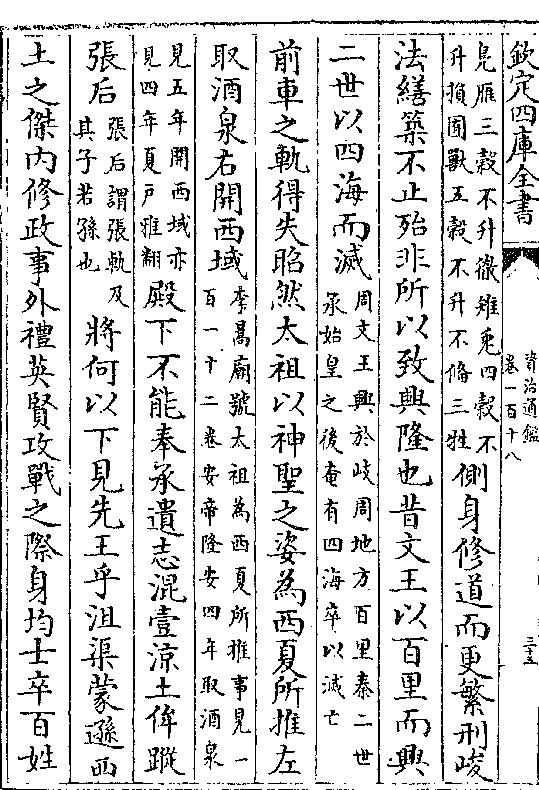 欽定四庫全書
資治通鑑
卷一百十八
三十五
鳬雁三穀不升徹雉兎四穀不
升損囿獸五穀不升不備三牲
側身修道而更繁刑峻
法繕築不止殆非所以致興隆也昔文王以百里而興
二世以四海而滅
周文王興於岐周地方百里秦二世
承始皇之後奄有四海卒以滅亡
前車之軌得失昭然太祖以神聖之姿為西夏所推左
取酒泉右開西域
李暠廟號太祖為西夏所推事見一
百一十二卷安帝隆安四年取酒泉
見五年開西域亦
見四年夏戶雅翻
殿下不能奉承遺志混壹涼土侔蹤
張后
張后謂張軌及
其子若孫也
將何以下見先王乎沮渠蒙遜西
土之傑內修政事外禮英賢攻戰之際身均士卒百姓